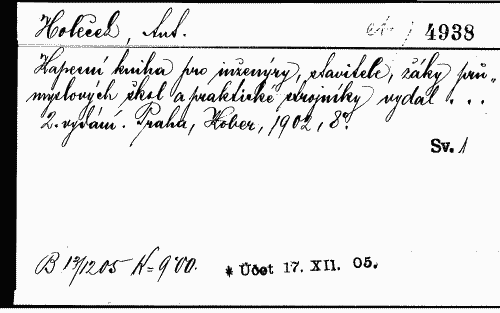 Holeček, Ant. 4938
Kapesní kniha pro inženýry, stavitele, žáky prů-
myslových škol a praktické strojníky vydal . . .
2. vydání. Praha, Kober, 1902, 8°.
Sv. 1
B 13/12 05 K=9·00. * Účet 17. XII. 05.